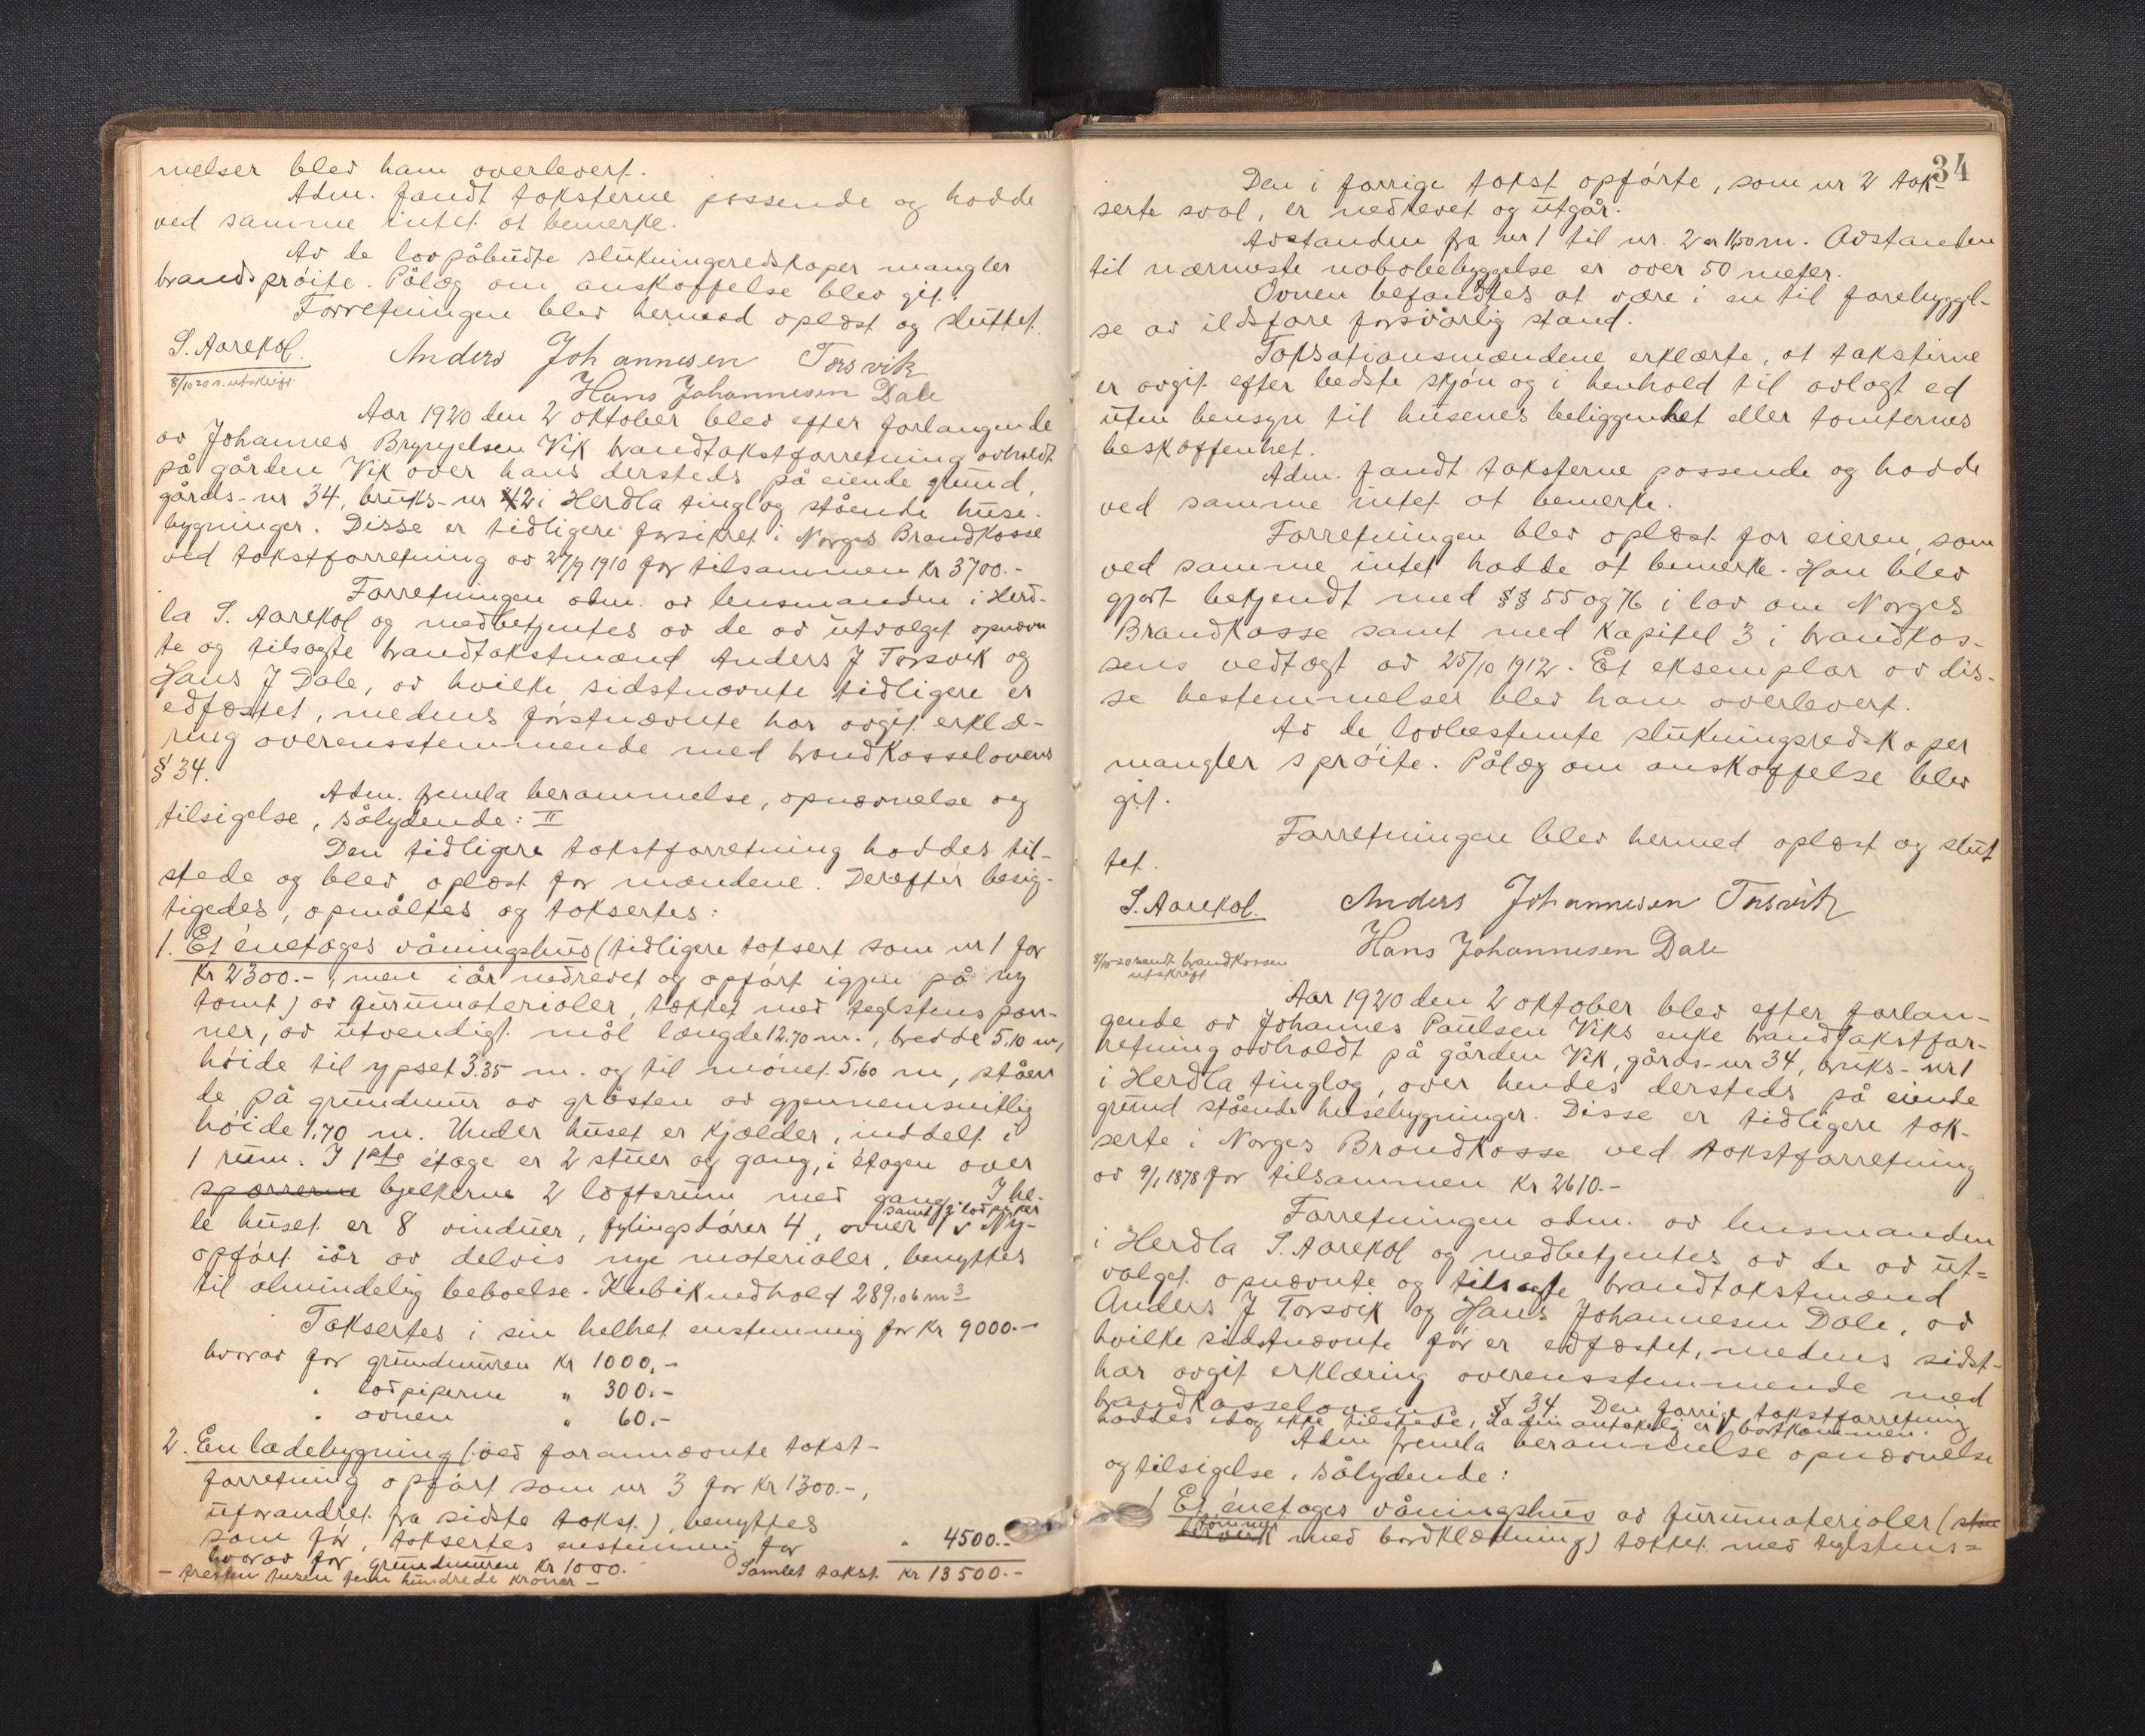 melser blev ham overlevert.
Adm. fandt taksterne passende og hadde
ved samme intet at bemerke.
Av de lovpåbudte slukningsredskaper mangler
brandsprøite. Pålæg om anskaffelse blev git.
Forretningen blev hermed oplæst og sluttet.
S. Aarekol. Anders Johannesen Torsvik
8/10 20 s. utskrift
Hans Johannesen Dale
Aar 1920 den 2 oktober blev efter forlangende
av Johannes Brynjelsen Vik brandtakstforretning avholdt
på gården Vik over hans dersteds på eiende grund,
gårds-nr 34, bruks-nr 2 i Herdla tinglag stående huse-
bygninger. Disse er tidligere forsikret i Norges Brandkasse
ved takstforretning av 27/9 1910 for tilsammen kr 3700.-
Forretningen adm. av lensmanden i Herd-
la S. Aarekol og medbetjentes av de av utvalget opnævn
te og tilsagte brandtakstmænd Anders J Torsvik og
Hans J Dale, av hvilke sidstnævnte tidligere er
edfæstet, medens førstnævnte har avgit erklæ-
ring overensstemmende med brandkasselovens
§ 34.
Adm. fremla berammelse, opnævnelse og
tilsigelse, sålydende: II
Den tidligere takstforretning haddes til-
stede og blev oplæst for mændene. Derefter besig-
tigedes, opmåltes og taksertes:
1. Et enetages våningshus (tidligere taksert som nr 1 for
kr 2300.-, men i år nedrevet og opført igjen på ny
tomt) av furumaterialer, tækket med teglstenspan-
ner, av utvendigt mål længde 12.70 m., bredde 5.10 m,
høide til gpset 3.35 m. og til mønet 5.60 m, ståen
de på grundmur av gråsten av gjennemsnitlig
høide 1.70 m. Under huset er kjælder, inddelt i
1 rum. I 1ste etage er 2 stuer og gang, i etagen over
sparrerne bjelkerne 2 loftsrum med gang. I he-
samt 2 lodpiper
le huset er 8 vinduer, fylingsdører 4, ovner 1 v Ny-
opført i år av delvis nye materialer, benyttes
til almindelig beboelse. Kubikindhold 289,06 m3
Taksertes i sin helhet enstemmig for kr 9000.-
hvorav for grundmuren kr 1000.-
" lodpiperne " 300.-
" ovnen " 60.-
2. En ladebygning (ved forannævnte takst-
forretning opført som nr 3 for kr 1300.-,
uforandret fra sidste takst), benyttes
som før, taksertes enstemmig for " 4500.-
hvorav for grundmuren kr 1000. Samlet takst kr 13500.-
- tretten tusen fem hundrede kroner -
34
Den i forrige takst opførte, som nr 2 tak-
serte sval, er nedrevet og utgår.
Avstanden fra nr 1 til nr. 2 er 11,50 m. Avstanden
til nærmeste nabobebyggelse er over 50 meter.
Ovnen befandtes at være i en til forebyggel-
se av ildsfare forsvarlig stand.
Taksationsmændene erklærte, at taksterne
er avgit efter bedste skjøn og i henhold til avlagt ed
uten hensyn til husenes beliggenhet eller tomternes
beskaffenhet.
Adm. fandt taksterne passende og hadde
ved samme intet at bemerke.
Forretningen blev oplæst for eieren, som
ved samme intet hadde at bemerke. Han blev
gjort bekjendt med §§ 55 og 76 i lov om Norges
Brandkasse samt med Kapitel 3 i brandkas-
sens vedtægt av 25/10 1912. Et eksemplar av dis-
se bestemmelser blev ham overlevert.
Av de lovbestemte slukningsredskaper
mangler sprøite. Pålæg om anskaffelse blev
git.
Forretningen blev hermed oplæst og slut
tet.
S. Aarekol. Anders Johannesen Torsvik
Hans Johannesen Dale
8/10-20 sendt brandkassen
utskrift
Aar 1920 den 2 oktober blev efter forlan-
gende av Johannes Paulsen Viks enke brandtakstfor-
retning avholdt på gården Vik, gårds-nr 34, bruks-nr 1
i Herdla tinglag, over hendes dersteds på eiende
grund stående husebygninger. Disse er tidligere tak-
serte i Norges Brandkasse ved takstforretning
av 9/1 1878 for tilsammen kr 2610.-
Forretningen adm. av lensmanden
i Herdla S. Aarekol og medbetjentes av de av ut-
valget opnævnte og tilsagte brandtakstmænd
Anders J Torsvik og Hans Johannesen Dale, av
hvilke sidstnævnte før er edfæstet, medens sidst-
har avgit erklæring overensstemmende med
brandkasselovens § 34. Den forrige takstforretning
haddes idag ikke tilstede, da den antakelig er bortkommen.
Adm fremla berammelse opnævnelse
og tilsigelse, sålydende:
1 Et enetages våningshus av furumaterialer (
tømmer
med bordklædning) tækket med teglstens-